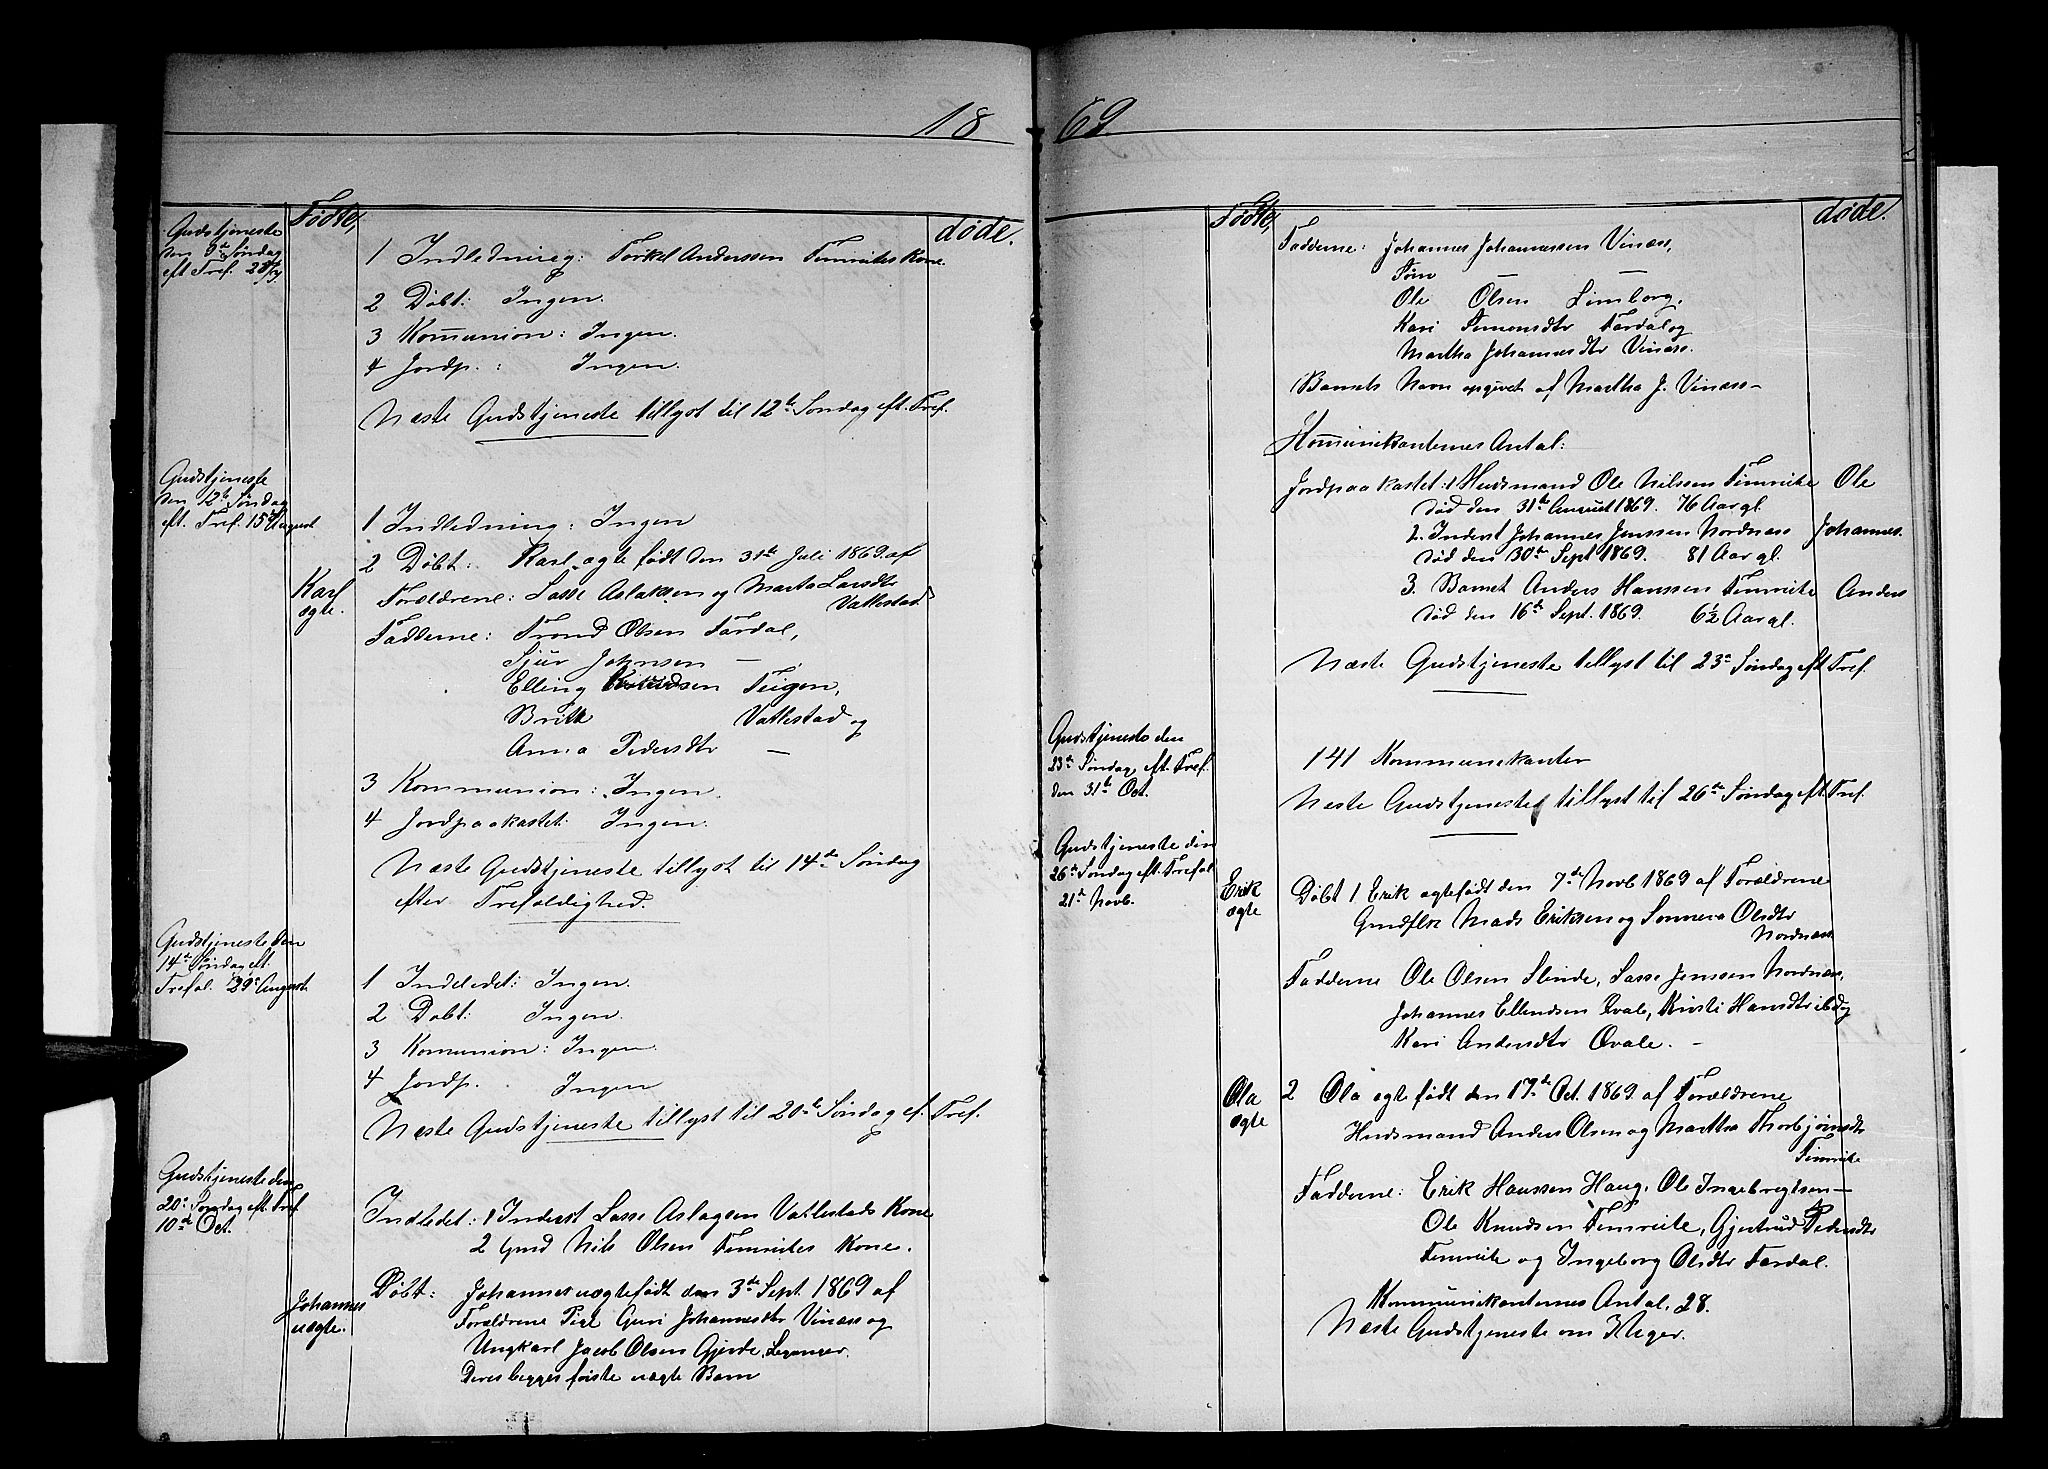 1869.
Fødte,
døde.
Gudstjeneste
den 9de Søndag
eft Tref. 28/7
1 Indledning: Torkel Anderssen Timreites Kone
2 Døbt: Ingen.
3 Kom̄union: Ingen.
4 Jordp.: Ingen.
Næste Gudstjeneste tillyst til 12te Søndag eft. Tref.
Gudstjeneste
den 12te Søndag
eft. Tref. 15de August
1 Indledning: Ingen
Karl
ægte.
2 Døbt: Karl ægte født den 31te Juli 1869 af
Forældrene: Lasse Aslaksen og Marta Larsdtr
Vallestad
Fadderne: Trond Olsen Fardal,
Sjur Johnsen —
Elling Knudsen Teigen,
Britt Vallestad og
Anna Pedersdtr —
3 Kommunion: Ingen.
4 Jordpaakastet: Ingen.
Næste Gudstjeneste tillyst til 14de Søndag
efter Trefoldighed.
Gudstjeneste den
14de Søndag eft.
Trefol. 29de August.
1 Indledet: Ingen.
2 Døbt: Ingen.
3 Komunion: Ingen.
4 Jordp. Ingen
Næste Gudstjeneste tillyst til 20de Søndag ef. Tref.
Gudstjeneste den
20de Søndag eft. Tref
10de Oct.
Indledet: 1 Inderst Lasse Aslagsen Vallestads Kone
2 Gmd Nils Olsen Timreites Kone.
Johannes
uægte.
Døbt: Johannes uægtefødt den 3de Sept 1869 af
Forældrene Pige Guri Johannesdtr Vinæss og
Ungkarl Jacob Olsen Gjerde, Leganger.
Deres begges første uægte Barn
Fødte,
døde.
Fadderne: Johannes Johannessen Vinæss,
Tøm — —
Ole Olsen Limborg,
Kari Simonsdtr Fardal og
Martha Johannesdtr Vinæss.
Barnets Navn opgivet af Martha J. Vinæss —
Kom̄unikanternes Antal:
Jordpaakastet: 1 Husmand Ole Nilssen Timreite Ole
død den 31te August 1869. 76 Aar gl.
2. Inderst Johannes Jenssen Nordnæss Johannes
død den 30te Sept 1869. 81 Aar gl.
3. Barnet Anders Hanssen Timreite Anders
død den 16de Sept. 1869. 6½ Aar gl.
Næste Gudstjeneste tillyst til 23de Søndag eft. Tref.
Gudstjeneste den
23de Søndag eft. Tref.
den 31te Oct.
141 Kommunikanter
Næste Gudstjeneste tillyst til 26de Søndag eft. Tref.
Gudstjeneste den
26de Søndag eft. Trefol
21de Novb.
Erik
ægte
Døbt 1 Erik ægtefødt den 7de Novb 1869 af Forældrene
Gmdfolk Mads Eriksen og Sønneva Olsdtr
Nordnæss
Fadderne Ole Olsen Slinde, Lasse Jenssen Nordnæss,
Johannes Ellendsen Ovale, Kristi Hansdtr ibd og
Kari Andersdtr Ovale. —
Ola
ægte
2 Ola ægte født den 17de Oct. 1869 af Forældrene
Husmand Anders Olsen og Martha Thorbjørnsdtr
Timreite
Fadderne: Erik Hanssen Haug, Ole Ingebregtsen —
Ole Knudsen Timreite, Gjertrud Pedersdtr
Timreite og Ingeborg Olsdtr Fardal.
Kommunikanternes Antal. 28.
Næste Gudstjeneste om 3 Uger.